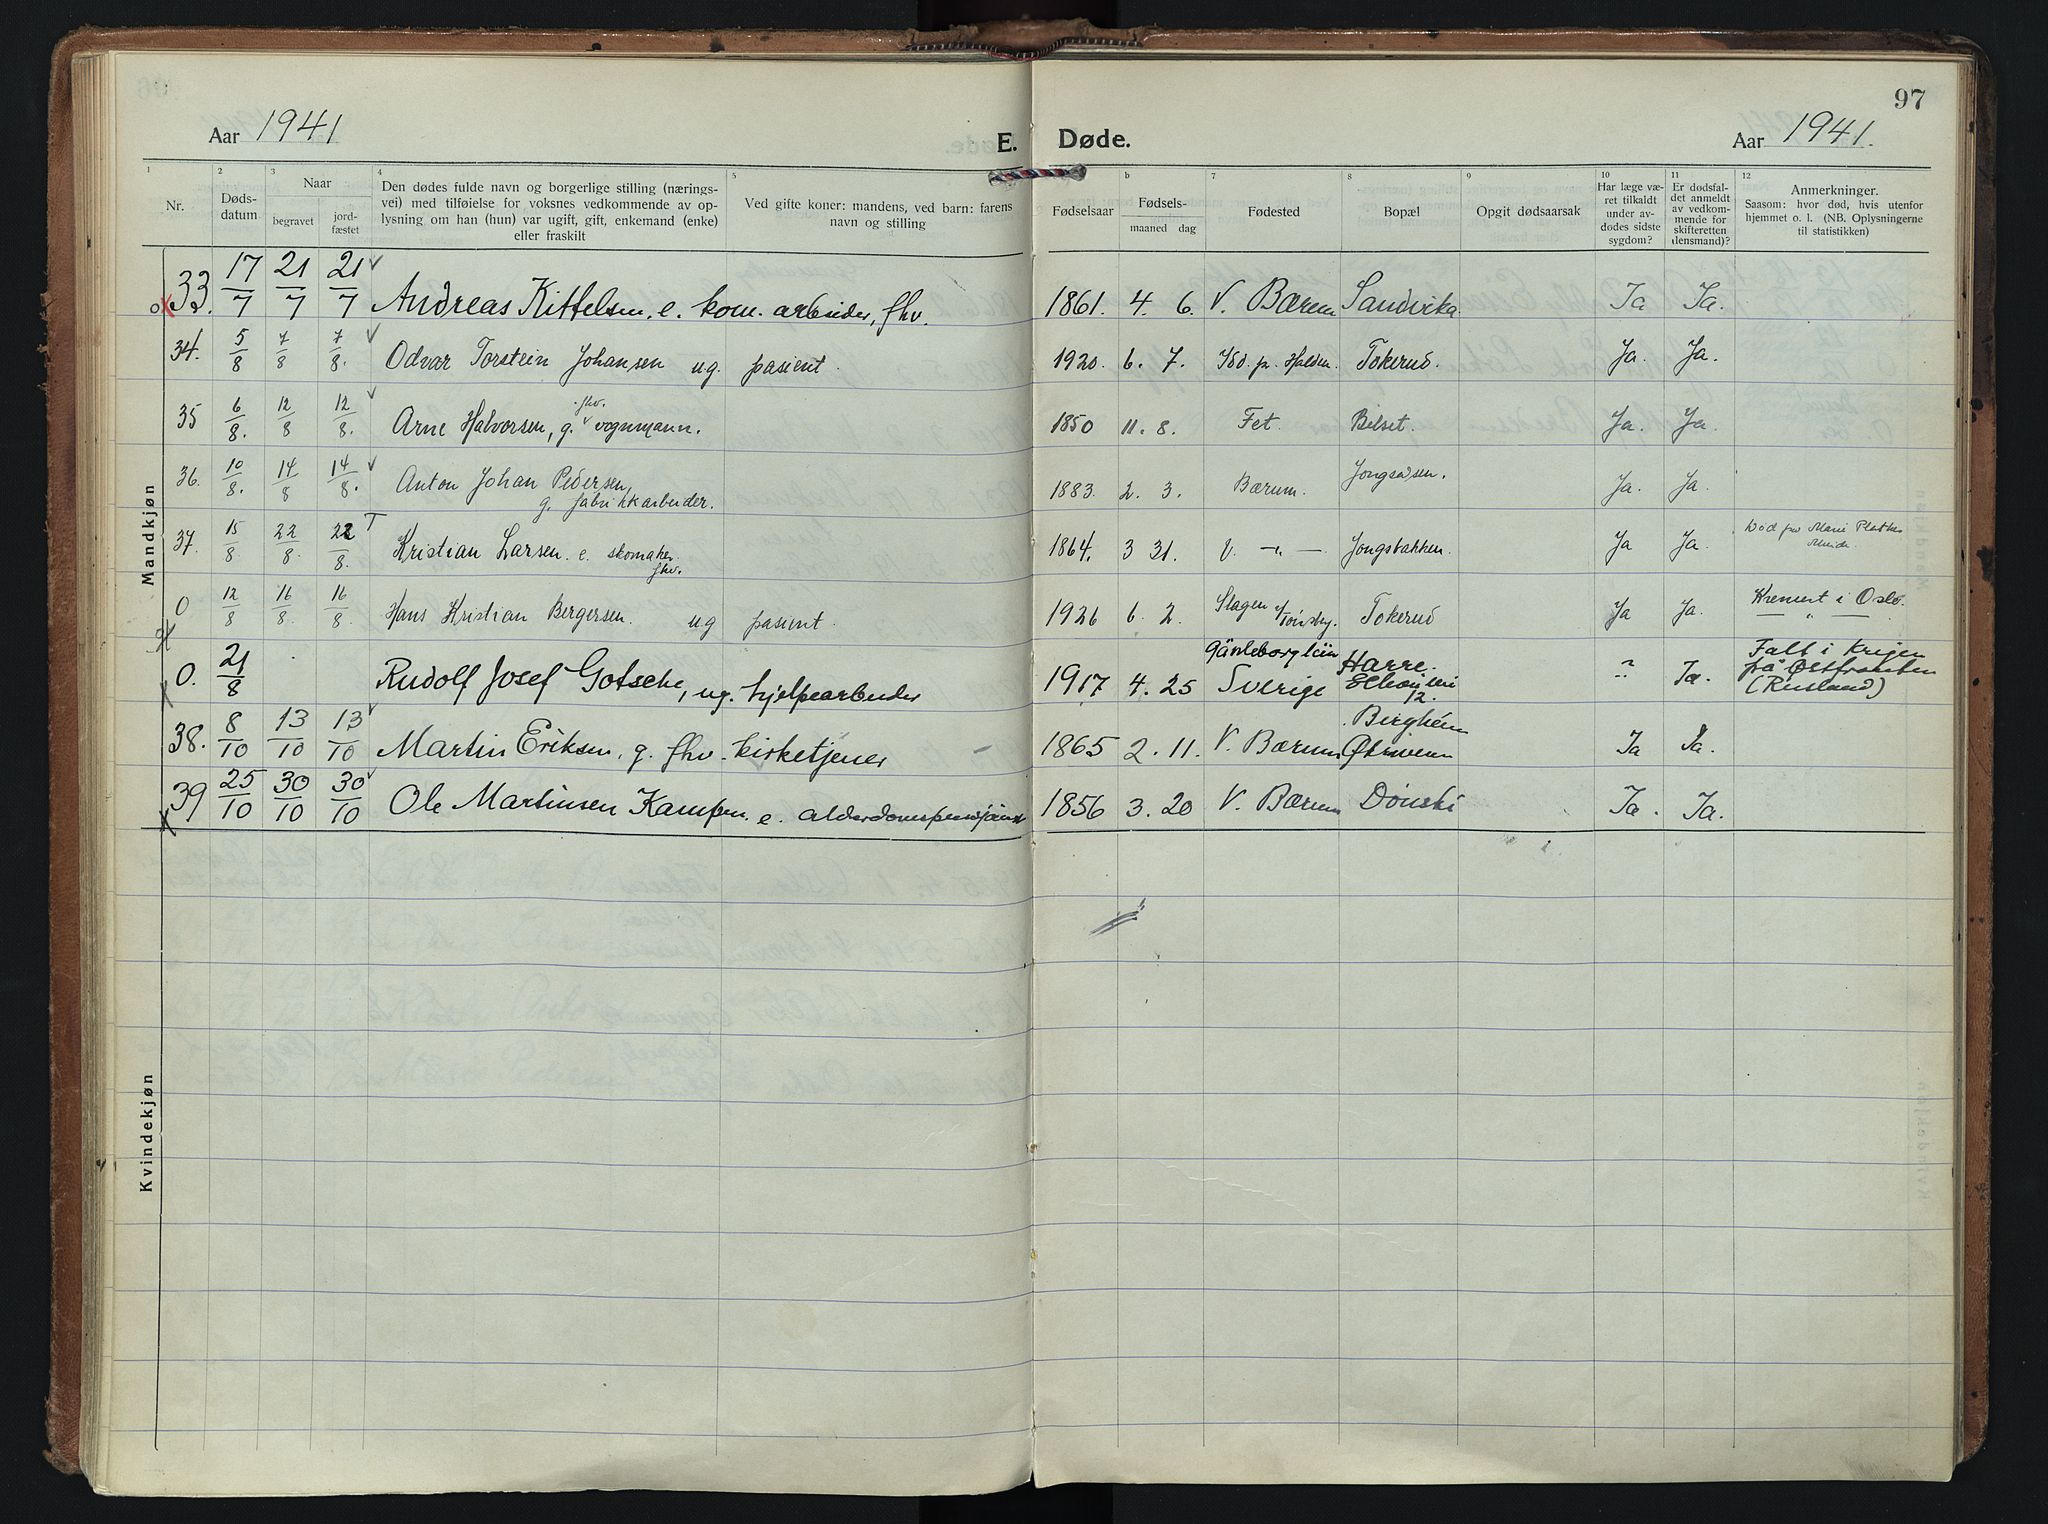 97
Aar 1941 E. Døde. Aar 1941.
1 2 3 4 5 b 7 8 9 10 11 12
Nr.
Dødsdatum
Naar
begravet
jordfæstet
Den dødes fulde navn og borgerlige stilling (næringsvei) med tilføielse for voksnes vedkommende av oplysning om han (hun) var ugift, gift, enkemand (enke) eller fraskilt
Ved gifte koner: mandens, ved barn: farens navn og stilling
Fødselsaar
Fødsels-
maaned dag
Fødested
Bopæl
Opgit dødsaarsak
Har læge været tilkaldt under avdødes sidste sygdom?
Er dødsfaldet anmeldt av vedkommende for skifteretten (lensmand)?
Anmerkninger.
Saasom: hvor død, hvis utenfor hjemmet o. l. (NB. Oplysningerne til statistikken)
Mandkjøn
33. 17/7 21/7 21/7 Andreas Kittelsen, e. kom. arbeider, fhv. 1861. 4. 6. V. Bærum Sandvika Ja Ja.
34. 5/8 7/8 7/8. Odvar Torstein Johansen ug. pasient. 1920. 6. 7. Idd. pr. Halden. Tokerud. Ja. Ja.
35 6/8. 12/8 12/8. Arne Halvorsen, g. fhv. vognmann. 1850 11. 8. Fet. Bilset. Ja. Ja.
36. 10/8. 14/8 14/8. Anton Johan Pedersen, g. fabrikkarbeider. 1883. 2. 3. Bærum. Jongsåsen. Ja. Ja.
37. 15/8 22/8. 22/8. T Kristian Larsen. e. skomaker fhv. 1864. 3 31. V. — „ — Jongsbakken. Ja Ja. Død Marie
0 12/8 16/8. 16/8. Hans Kristian Bergersen. ug pasient. 1926 6. 2. Slagen v/Tønsberg. Tokerud Ja Ja. Kremert i Oslo.
0. 21/8 Rudolf Josef Gotsche, ug. hjelpearbeider 1917 4. 25 Sverige Ja. Falt i krigen på Østfronten (Rusland)
38. 8/10 13/10 13/10 Martin Eriksen, g. fhv. kirketjener 1865 2. 11. V. Bærum Ja Ja.
39 25/10 30/10 30/10 Ole Martinsen Kampen. e. 1856 3. 20 V. Bærum Dønski Ja. Ja.
Kvindekjøn